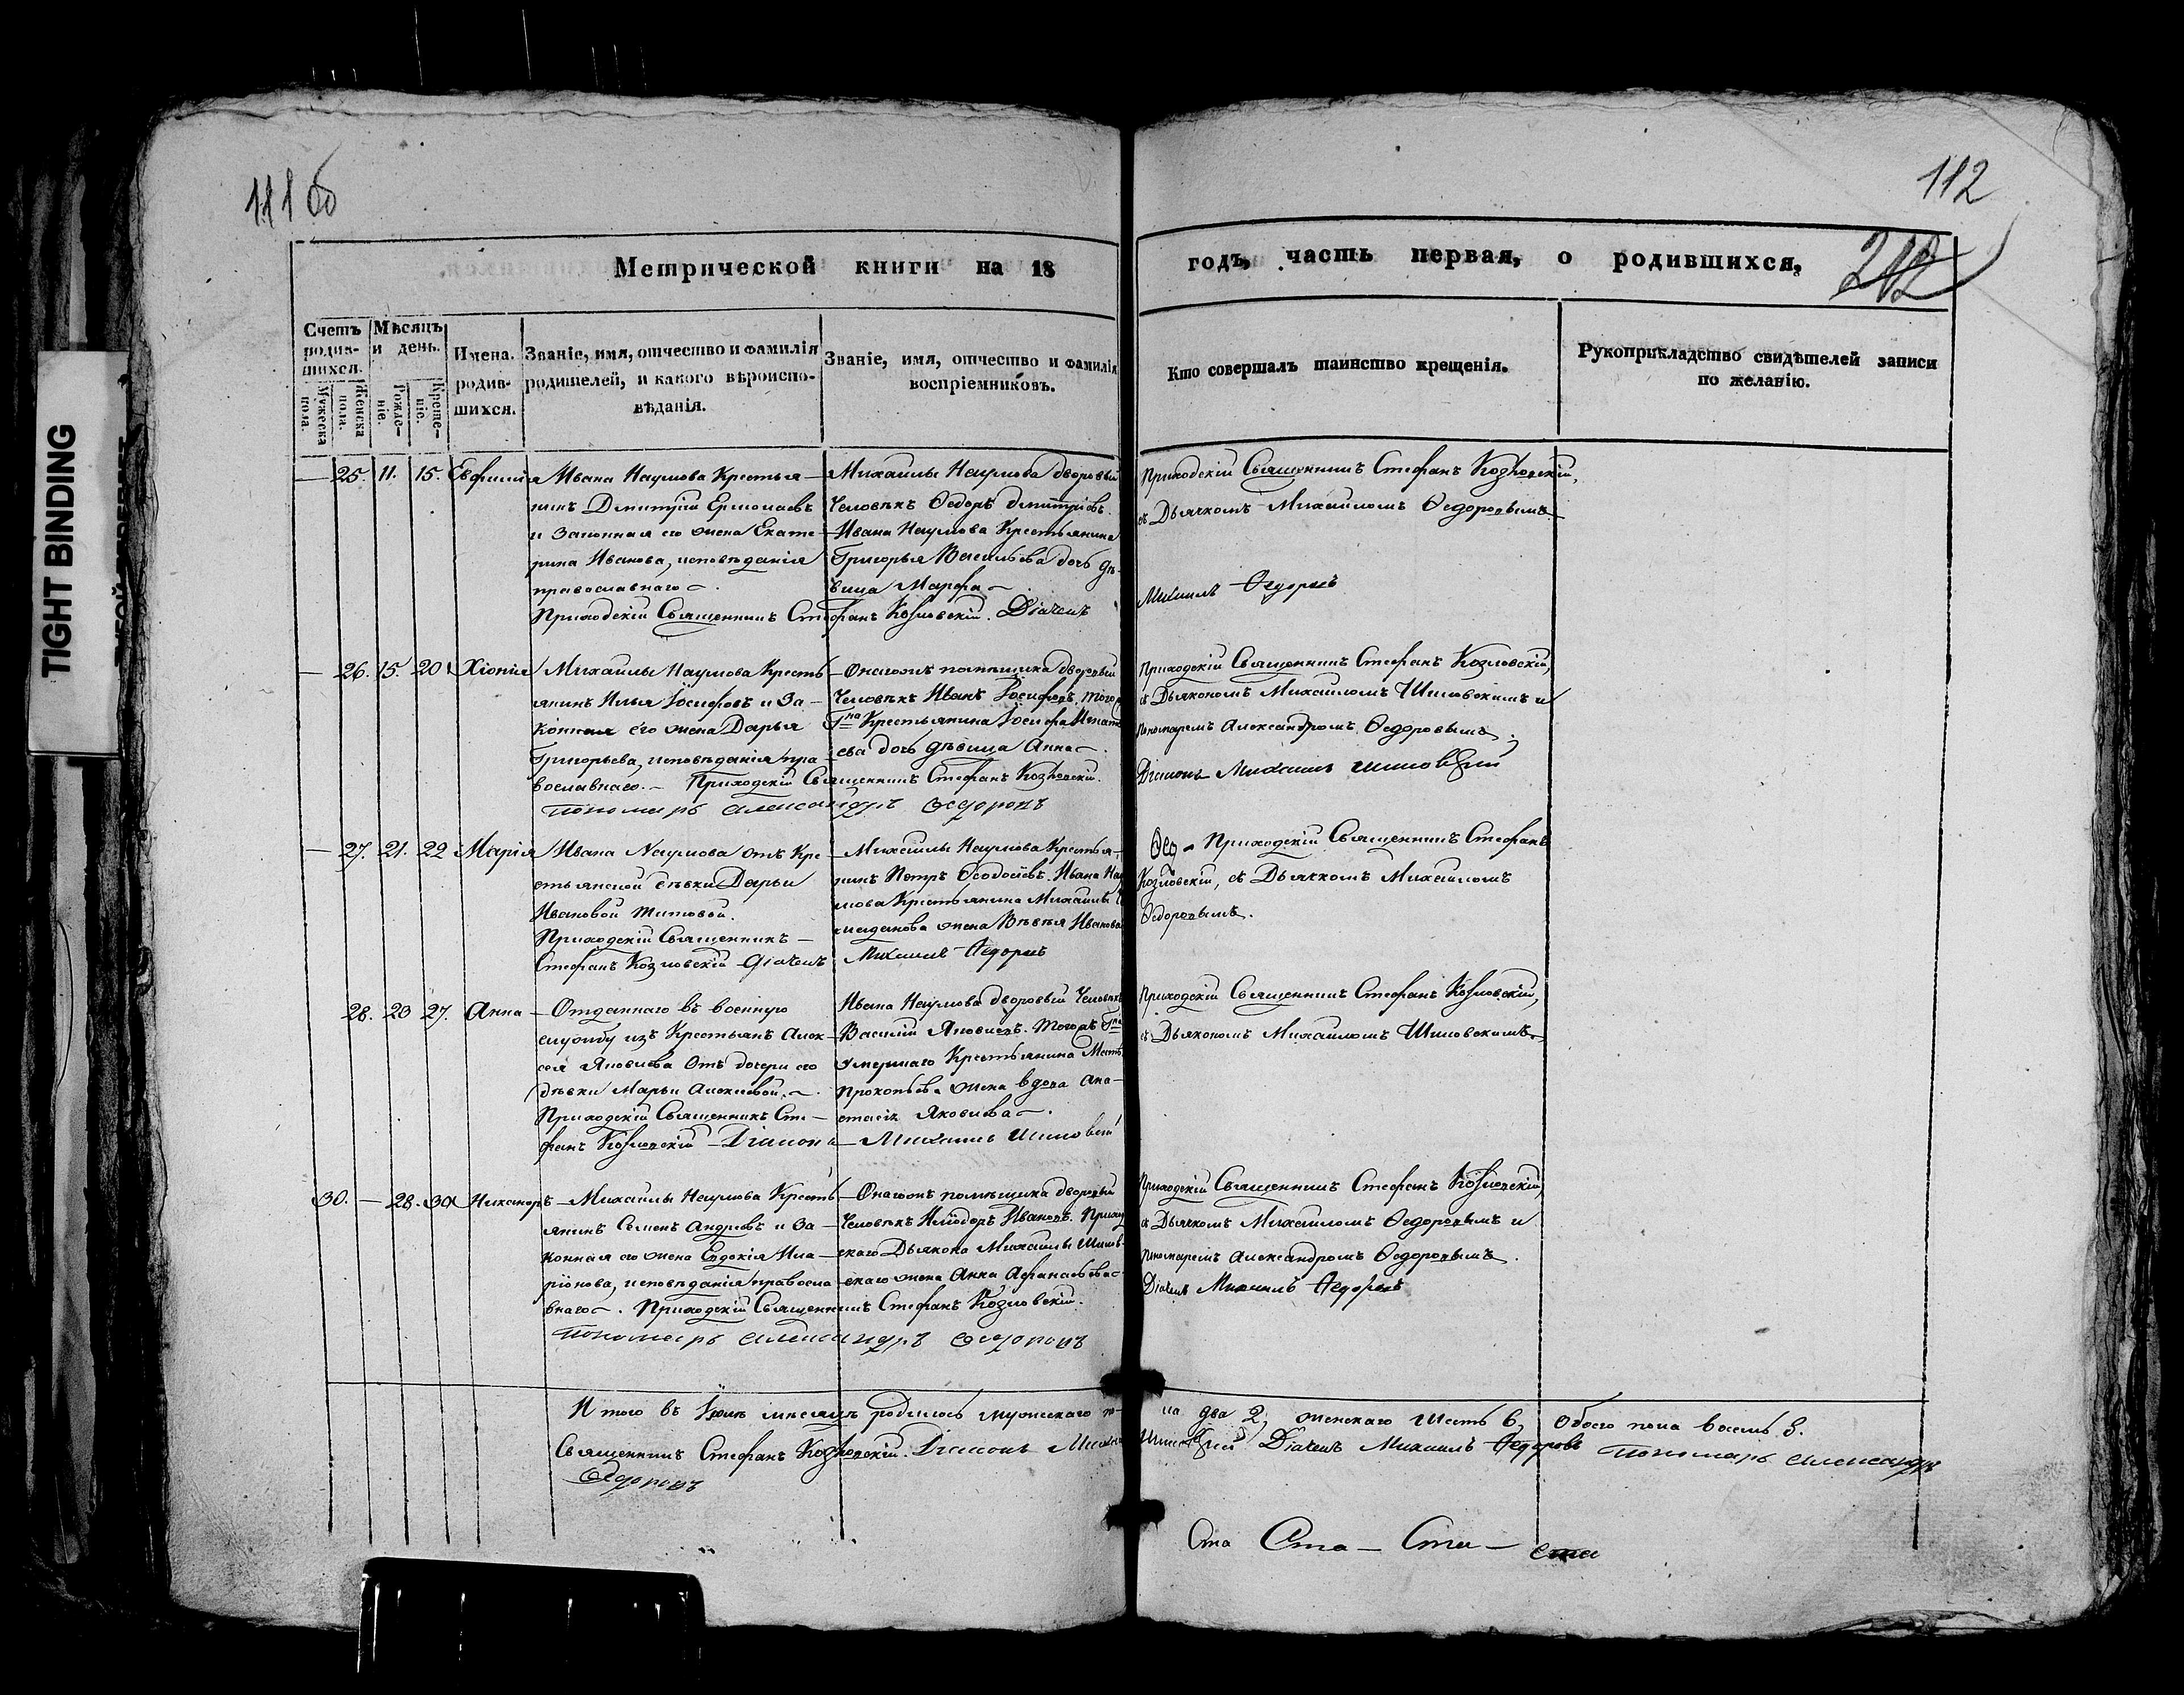 TIGHT BINDING
111 об
112
212
Метрической книги на 18
годъ, часть первая, о родившихся,
Счетъ родив-шихся.
Мужеска пола.
Женска пола.
Мѣсяцъ и день.
Рожде-ніе.
Креще-ніе.
Имена. родив-шихся.
Званіе, имя, отчество и фамилія
родителей, и какого вѣроиспо-
вѣданія.
Званіе, имя, отчество и фамилія
воспріемниковъ.
Кто совершалъ таинство крещенія.
Рукоприкладство свидѣтелей записи
по желанію.
— 25. 11. 15. Евфимія
Ивана Наумова Крестья-
нинъ Димитрій Ермолаевъ
и Законная его жена Екате-
рина Иванова, исповѣданія
православнаго.
Михаилы Наумова дворовый
Человѣкъ Ѳедоръ Дмитріевъ.
Ивана Наумова Крестьянина
Григорья Васильева дочь дѣ-
вица Марфа.
Приходскій Священникъ Стефанъ Козловскій. Діачекъ
Приходскій Священникъ Стефанъ Козловскій,
съ Дьячкомъ Михаиломъ Ѳедоровымъ
Михаилъ Ѳедоровъ
— 26. 15. 20 Хіонія
Михаилы Наумова Кресть-
янинъ Илья Іосифовъ и За-
конная его жена Дарья
Григорьева, исповѣданія пра-
вославнаго. — Приходскій Священникъ Стефанъ Козловскій.
Онагожъ помѣщика дворовый
Человѣкъ Иванъ Іосифовъ. Тогожъ
Гна Крестьянина Іосифа Игнать-
ева дочь дѣвица Анна.
Пономарь Александръ Ѳедоровъ
Приходскій Священникъ Стефанъ Козловскій,
съ Дьякономъ Михаиломъ Шиловскимъ и
Пономаремъ Александромъ Ѳедоровымъ.
Діаконъ Михаилъ Шиловскій
— 27. 21. 22 Марія
Ивана Наумова отъ Кре-
стьянской дѣвки Дарьи
Ивановой Титовой.
Приходскій Священникъ —
Стефанъ Козловскій Діачекъ
Михаилы Наумова Крестья-
нинъ Петръ Ѳеодосіевъ. Ивана Нау-
мова Крестьянина Михаилы
жена Иванова
Михаилъ Ѳедоровъ
Приходскій Священникъ Стефанъ
Козловскій, съ Дьячкомъ Михаиломъ
Ѳедоровымъ.
28. 23 27. Анна
Отданнаго въ военную
службу изъ Крестьянъ Алек-
сея Яковлева Отъ дочери его
дѣвки Марьи Алексѣевой.
Приходскій Священникъ Сте-
фанъ Козловскій Діаконъ
Ивана Наумова дворовый Человѣкъ
Василій Яковлевъ. Тогожъ Гна
умершаго Крестьянина
Прокопьева жена вдова Ана-
стасія Яковлева.
Михаилъ Шиловскій
Приходскій Священникъ Стефанъ Козловскій,
съ Дьякономъ Михаиломъ Шиловскимъ.
30. — 28. 30 Никаноръ
Михаилы Наумова Кресть-
янинъ Семенъ Андреевъ и За-
конная его жена Евдокія Ила-
ріонова, исповѣданія правосла-
внаго. Приходскій Священникъ Стефанъ Козловскій.
Онагожъ помѣщика дворовый
Человѣкъ Иліодоръ Ивановъ. Приход-
скаго Дьякона Михаилы Шилов-
скаго жена Анна Афанасьева
Пономарь Александръ Ѳедоровъ
Приходскій Священникъ Стефанъ Козловскій,
съ Дьячкомъ Михаиломъ Ѳедоровымъ и
Пономаремъ Александромъ Ѳедоровымъ.
Діачекъ Михаилъ Ѳедоровъ
Итого въ Іюлѣ мѣсяцѣ родилось мужескаго по-
ла два 2, женскаго шесть 6, Обоего пола восемь 8.
Священникъ Стефанъ Козловскій. Діаконъ Михаилъ
Шиловскій Діачекъ Михаилъ Ѳедоровъ Пономарь Александръ
Ѳедоровъ
Ста Ста — Ста — ста